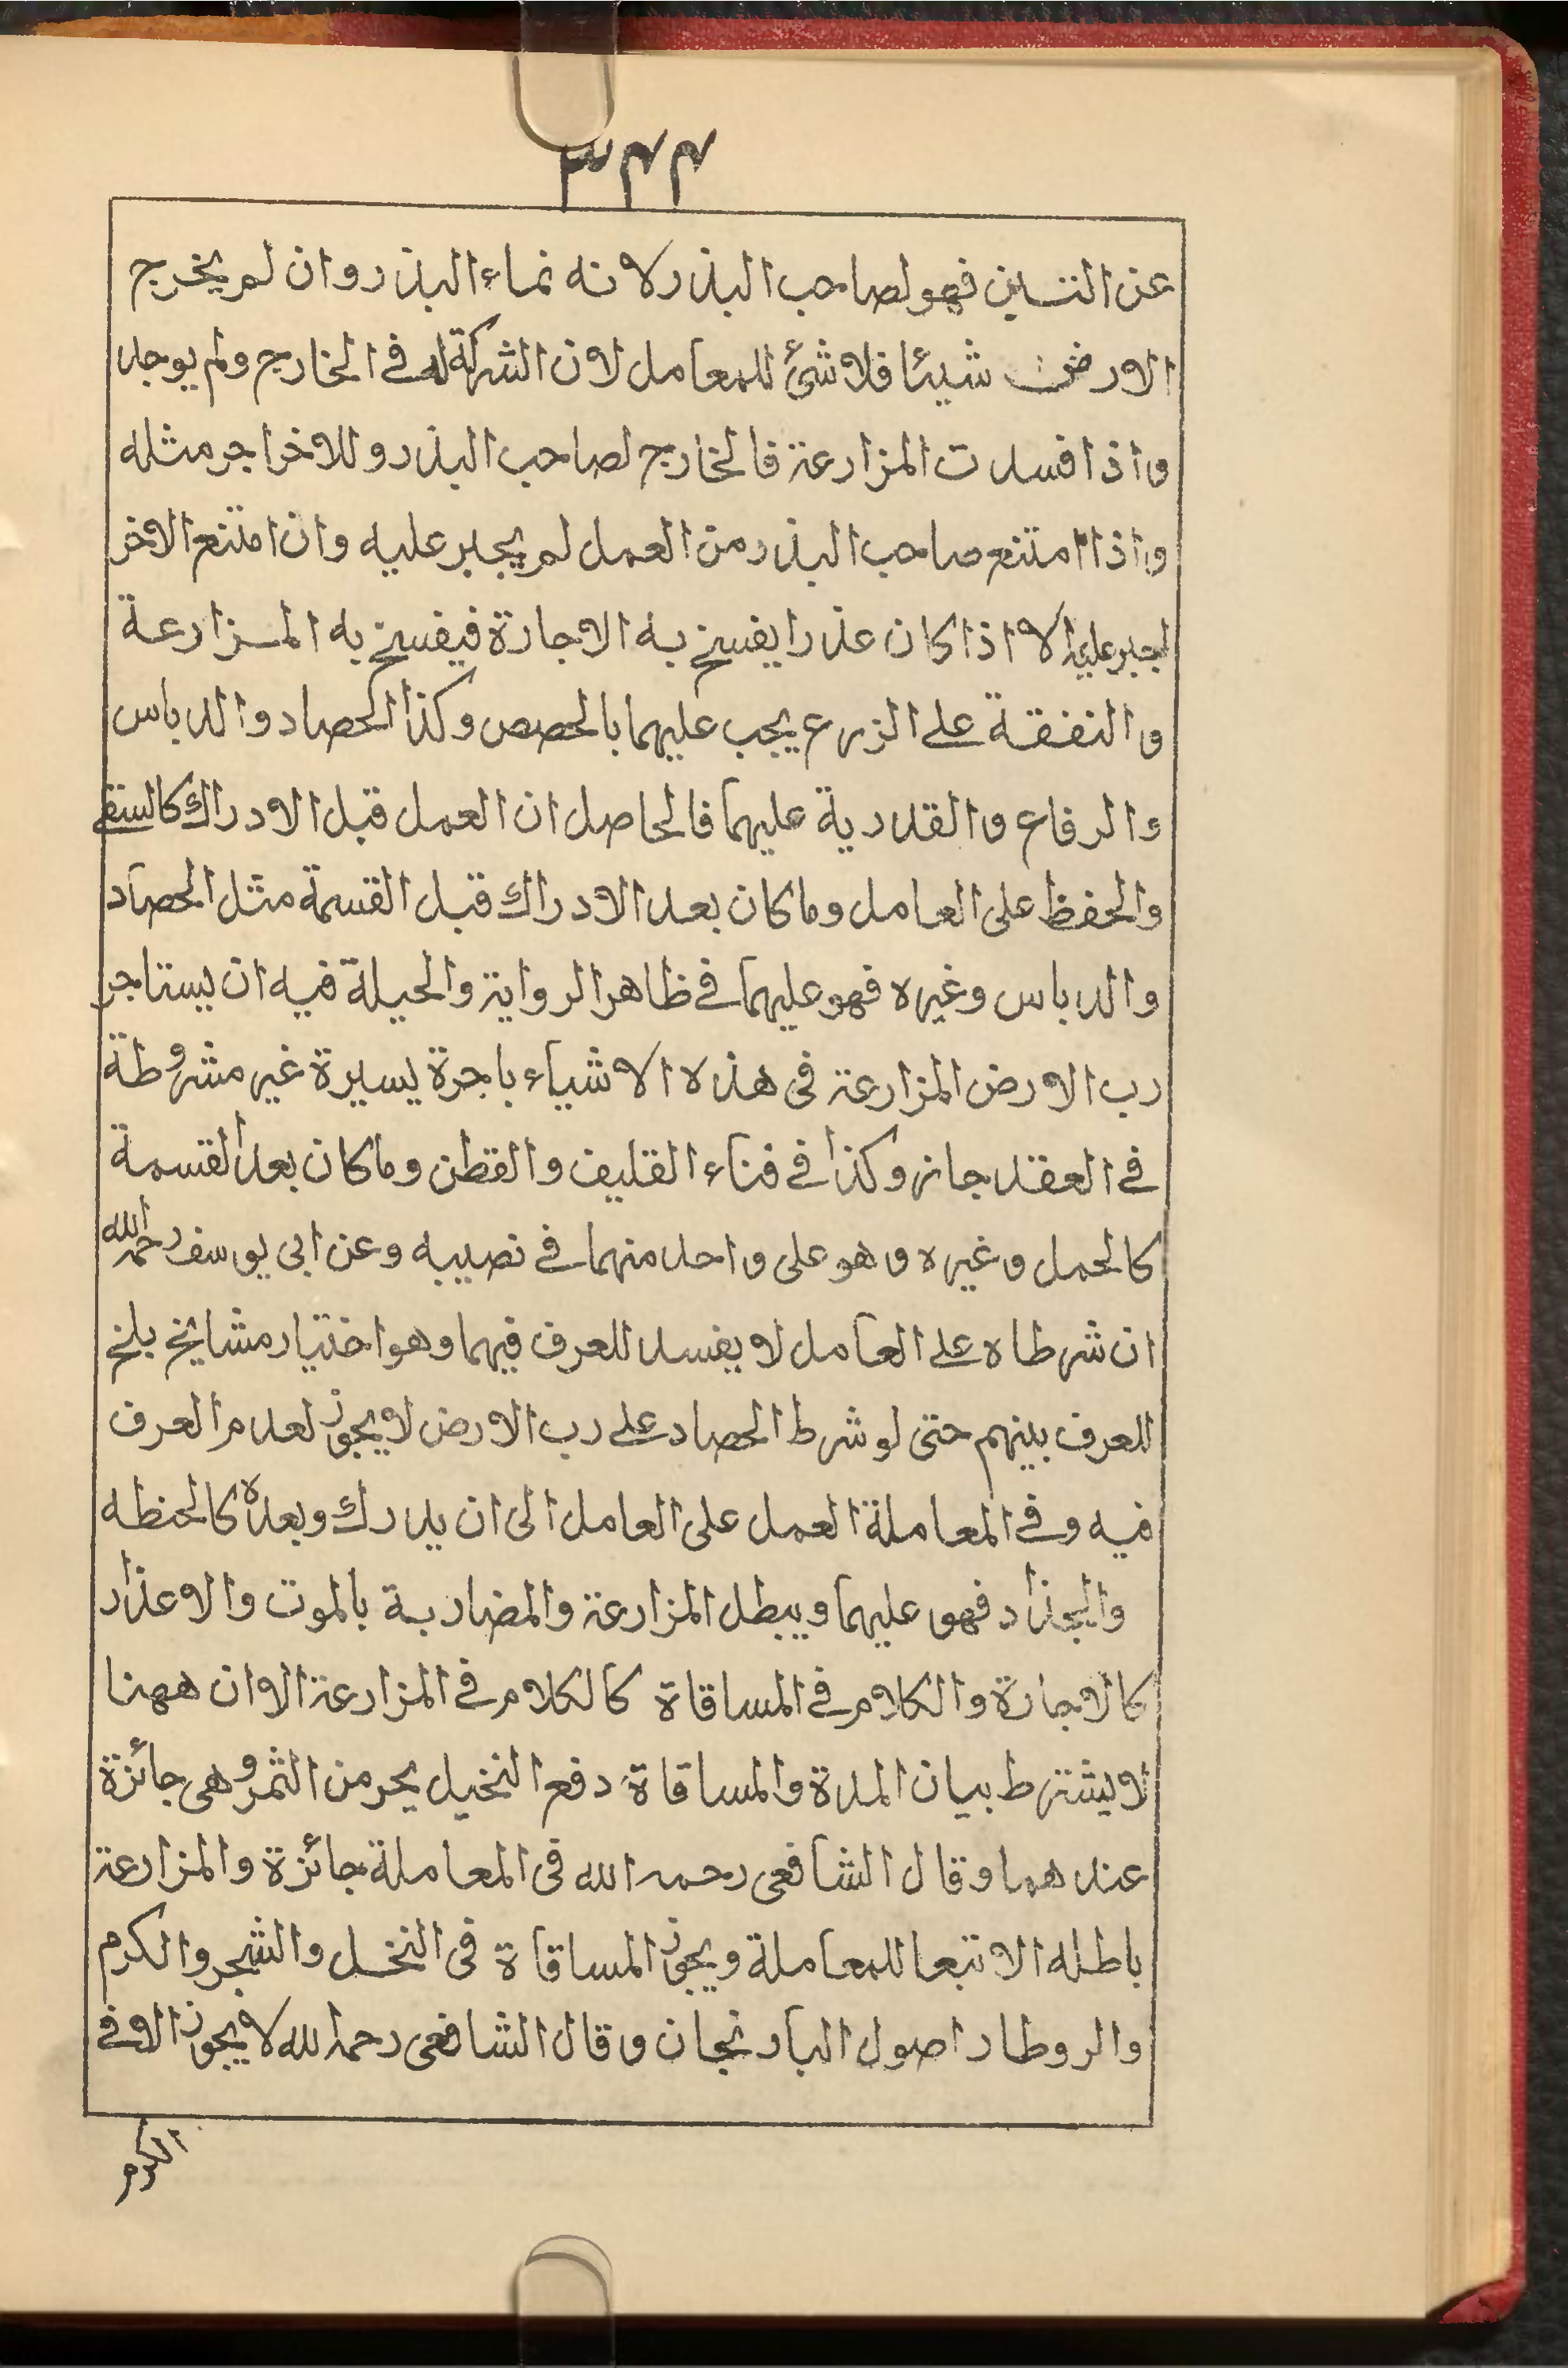 ٣٣٣
عن التبين فهو لصاحب البذر لانه نماء البذر وان لم يخرج
الارض شيئا فلا شئ للمعامل لان الشركة له في الخارج ولم يوجد
واذا فسدت المزارعة فالخارج لصاحب البذر وللاخر اجر مثله
واذا امتنع صاحب البذر من العمل لم يجبر عليه وان امتنع الاخر
اجبر عليه الا اذا كان عذرا يفسخ به الاجارة فيفسخ به المزارعة
والنفقة على الزرع يجب عليهما بالحصص وكذا الحصاد والدباس
والرفاع والقدرية عليهما فالحاصل ان العمل قبل الادراك كالسقي
والحفظ على العامل وما كان بعد الادراك قبل القسمة مثل الحصاد
والدباس وغيره فهو عليهما في ظاهر الرواية والحيلة فيه ان يستاجر
رب الارض المزارعة فى هذه الاشياء باجرة يسيرة غير مشروطة
في العقد جاز وكذا في فناء القليف والقطن وما كان بعد القسمة
كالحمل وغيره وهو على واحد منهما في نصيبه وعن ابى يوسف رحمه الله
ان شرطاه على العامل لا يفسد للعرف فيهما وهو اختيار مشايخ بلخ
للعرف بينهم حتى لو شرط الحصاد على رب الارض لا يجوز لعدم العرف
فيه وفي المعاملة العمل على العامل الى ان يدرك وبعده كالحنطه
والجذاد فهو عليهما ويبطل المزارعة والمضاربة بالموت والاعذار
كالاجارة والكلام في المساقاة كالكلام في المزارعة الا ان ههنا
لا يشترط بيان المدة والمساقاة دفع النخيل يحر من الثمر وهى جائزة
عندهما وقال الشافعى رحمه الله فى المعاملة جائزة والمزارعة
باطله الا تبعا للمعاملة ويجوز المساقاة فى النخل والشجر والكرم
والروطار اصول البادنجان وقال الشافعى رحمه الله لا يجوز الا في
الكرم